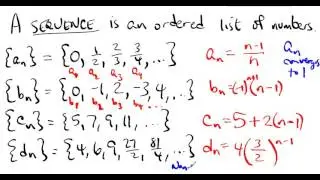 A SEQUENCE is an ordered list of numbers.
{aₙ} = {0, 1/2, 2/3, 3/4, ...} aₙ = (n-1)/n aₙ converges to 1
a₁ a₂ a₃ a₄
{bₙ} = {0, -1, 2, -3, 4, ...} bₙ = (-1)ⁿ⁺¹(n-1)
b₁ b₂ b₃ b₄
{cₙ} = {5, 7, 9, 11, ...} cₙ = 5 + 2(n-1)
{dₙ} = {4, 6, 9, 27/2, 81/4, ...} dₙ = 4(3/2)ⁿ⁻¹